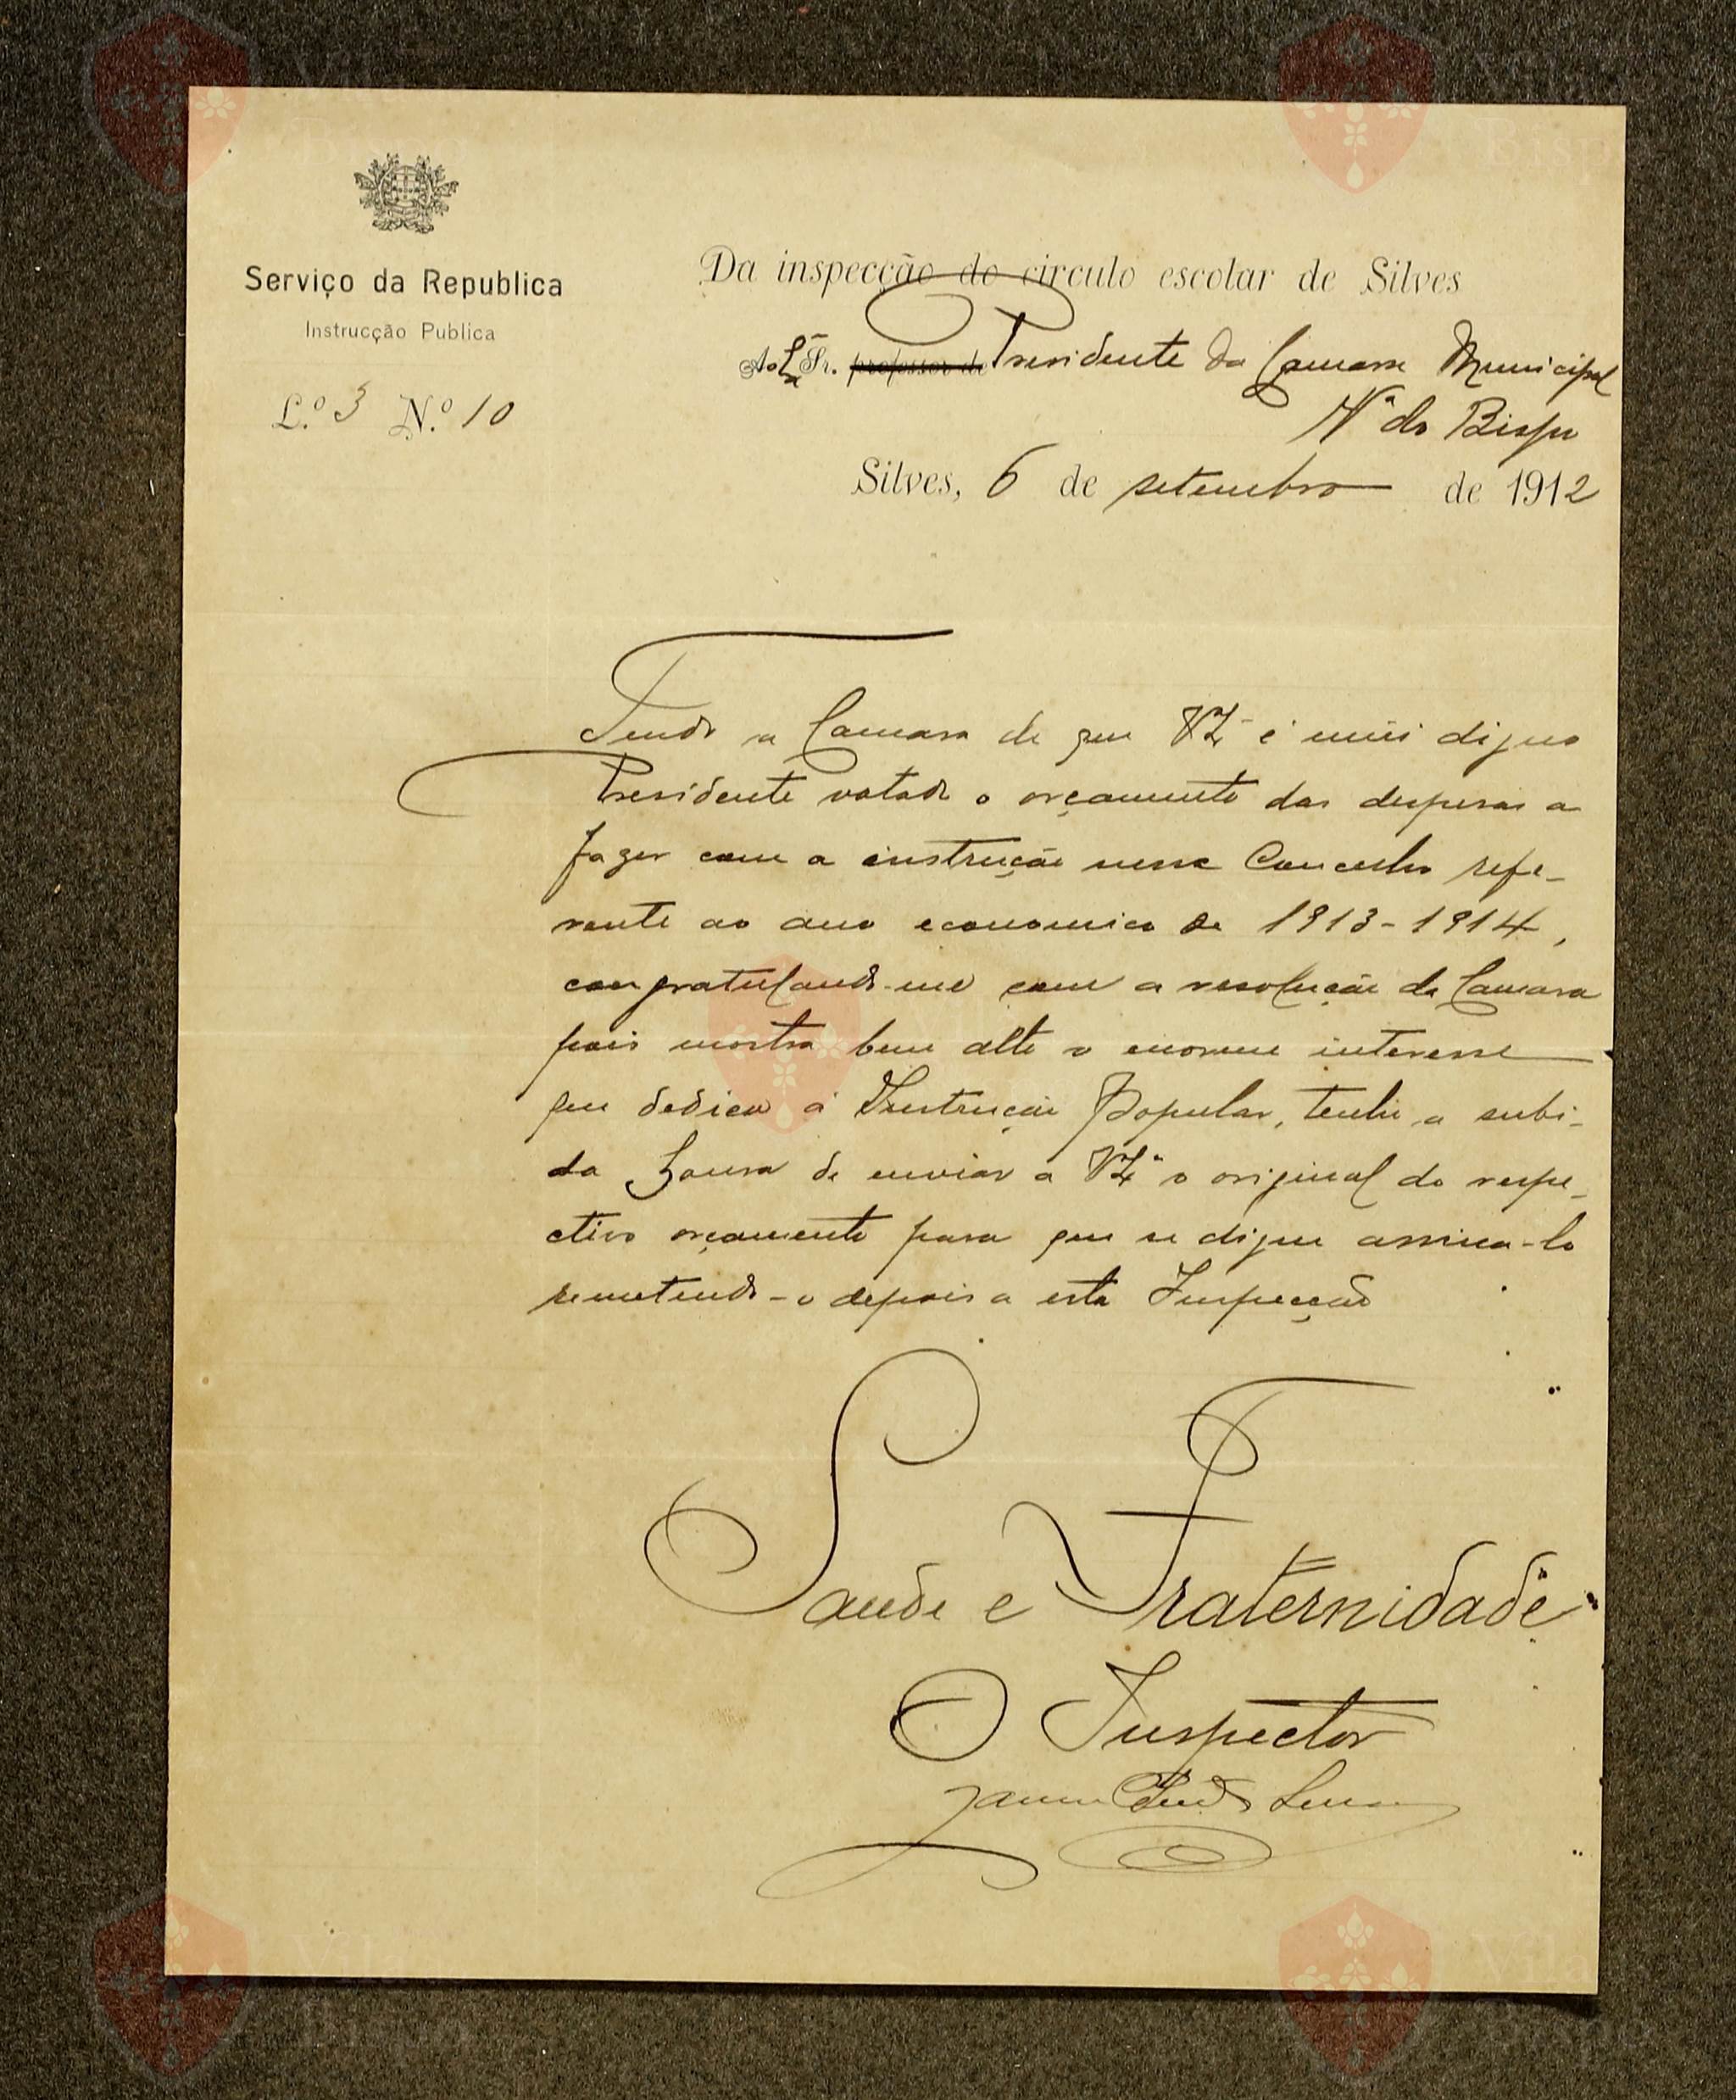 Serviço da Republica
Instrucção Publica
L.º 3 N.º 10
Da inspecção do circulo escolar de Silves
Ao Sr. professor de Presidente da Camara Municipal
Vª do Bispo
Silves, 6 de setembro de 1912
Tendo a Camara de que é mũi digno
Presidente votado o orçamento das despesas a
fazer com a instrução nesse Concelho refe-
rente ao ano economico de 1913-1914,
congratulando-me com a resolução da Camara
pois mostra bem alto o enorme interesse
que dedica á Instrução Popular, tenho a subi-
da honra de enviar a o original do respe-
ctivo orçamento para que se digne assina-lo
remetendo-o depois a esta Inspecção
Saude e Fraternidade
O Inspector
Vila do Bispo